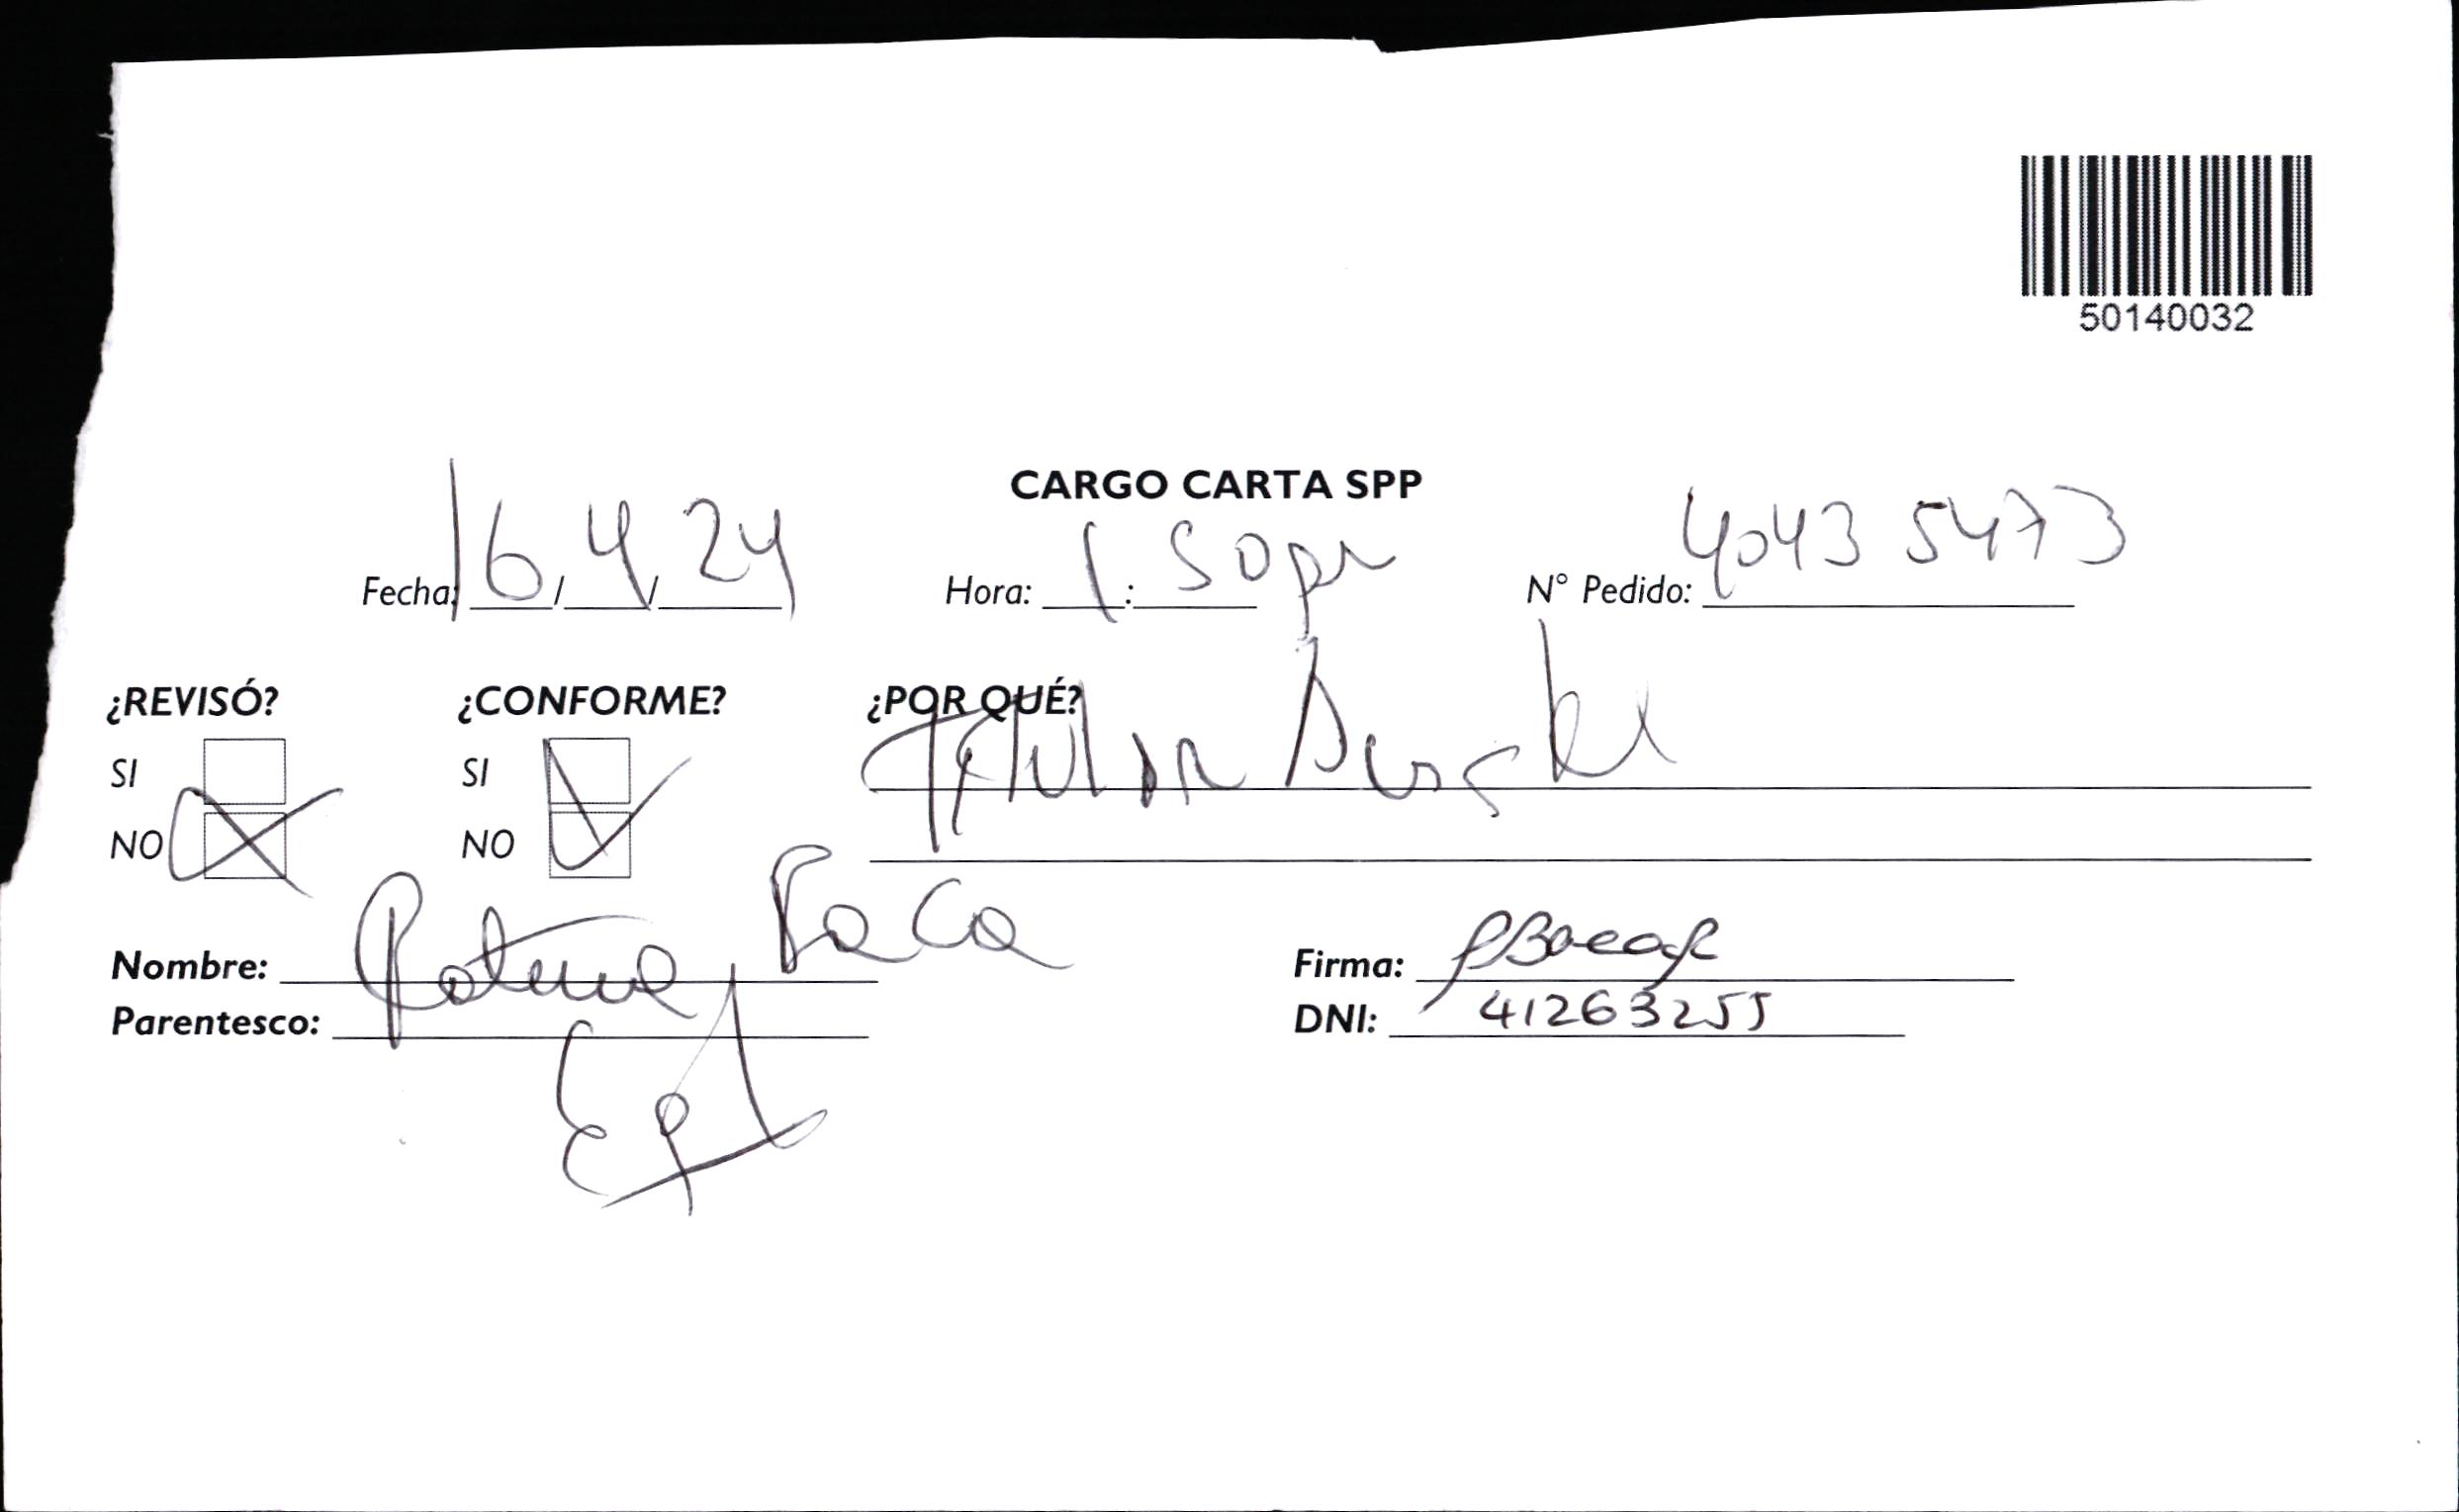 50140032
CARGO CARTA SPP
Fecha: 16/4/24 Hora: 1:50pm N° Pedido: 40435473
¿REVISÓ? ¿CONFORME? ¿POR QUÉ?
SI SI
NO NO
Nombre: Baca Firma:
Parentesco: DNI: 41263255